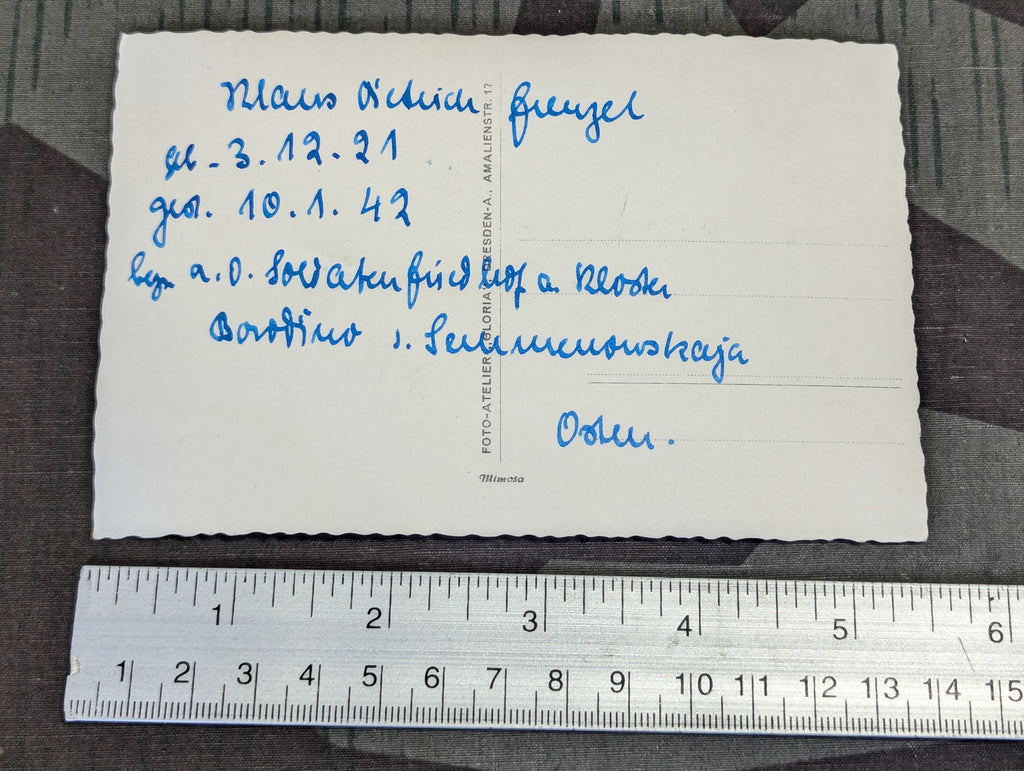 Klaus Dietrich Frenzel
geb. 3.12.21
ges. 10.1.42
a.D. Soldatenfriedhof a. Kloster
Borodino s. Semmenowskaja
Osten.
FOTO-ATELIER GLORIA, DRESDEN-A., AMALIENSTR. 17
Mimosa
1 2 3 4 5 6
1 2 3 4 5 6 7 8 9 10 11 12 13 14 15